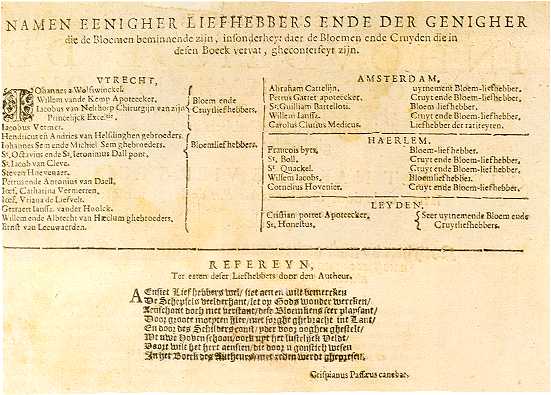 NAMEN EENIGHER LIEFHEBBERS ENDE DER GENIGHER
die de Bloemen beminnende zijn, insonderheyt daer de Bloemen ende Cruyden die in
desen Boeck vervat, gheconterfeyt zijn.
VTRECHT,
Iohannes a Wolfswinckel.
Willem vande Kemp Apoteecker.
Iacobus van Nelthorp Chirurgijn van zijn
Princelijck Excell.
Bloem ende
Cruytliefhebbers.
Iacobus Vermer.
Hendricus en Andries van Helsdinghen gebroeders.
Iohannes Sem ende Michiel Sem ghebroeders.
St. Octavius ende St. Ieronimus Dall pont,
St. Iacob van Cleve.
Steven Hoevenaer.
Petrus ende Antonius van Daell,
Ioef. Catharina Vermerren,
Ioef. Vriana de Liefvelt.
Gerraert Iansss. vander Hoolck.
Willem ende Albrecht van Hoelum ghebroeders,
Ernst van Leeuwaerden.
Bloemliefhebbers.
AMSTERDAM,
Abraham Cattelijn, uytnement Bloem-liefhebber.
Petrus Garret apoteecker, Cruyt ende Bloem-liefhebber.
St. Guilliam Bartellots. Cruyt ende Bloem-liefhebber.
Willem Ianss. Cruyt ende Bloem-liefhebber.
Carolus Clutius Medicus. Liefhebber der rariteyten.
HAERLEM.
Francois Bloem-liefhebber.
St. Boll, Cruyt ende Bloem-liefhebber.
St. Quackel. Cruyt ende Bloem-liefhebber.
Willem Iacobs, Bloemliefhebber.
Cornelius Hovenier. Cruyt ende Bloem-liefhebber.
LEYDEN,
Cristian porret Apoteecker,
St. Honestus,
Seer uytnemende Bloem ende
Cruytliefhebbers.
REFEREYN,
Ter eeren deser Liefhebbers door den Autheur.
AEnsiet Liefhebbers wel/ siet aen en wilt bemercken
De Schepsels veelderhant/ let op Gods wonder wercken/
Aenschout doch met verstant/ dees Bloemkens seer playsant/
Door groote moeyten hier/ met sorghe ghebracht int Lant/
En door des Schilders const/ voor ooghen ghestelt/
in u lustelijck Veldt/
wilt het hert aensien/ die door u gonstich wesen
In het Boeck des Autheurs/ met reden werdt ghepresen.
Crispianus Passæus canebat.